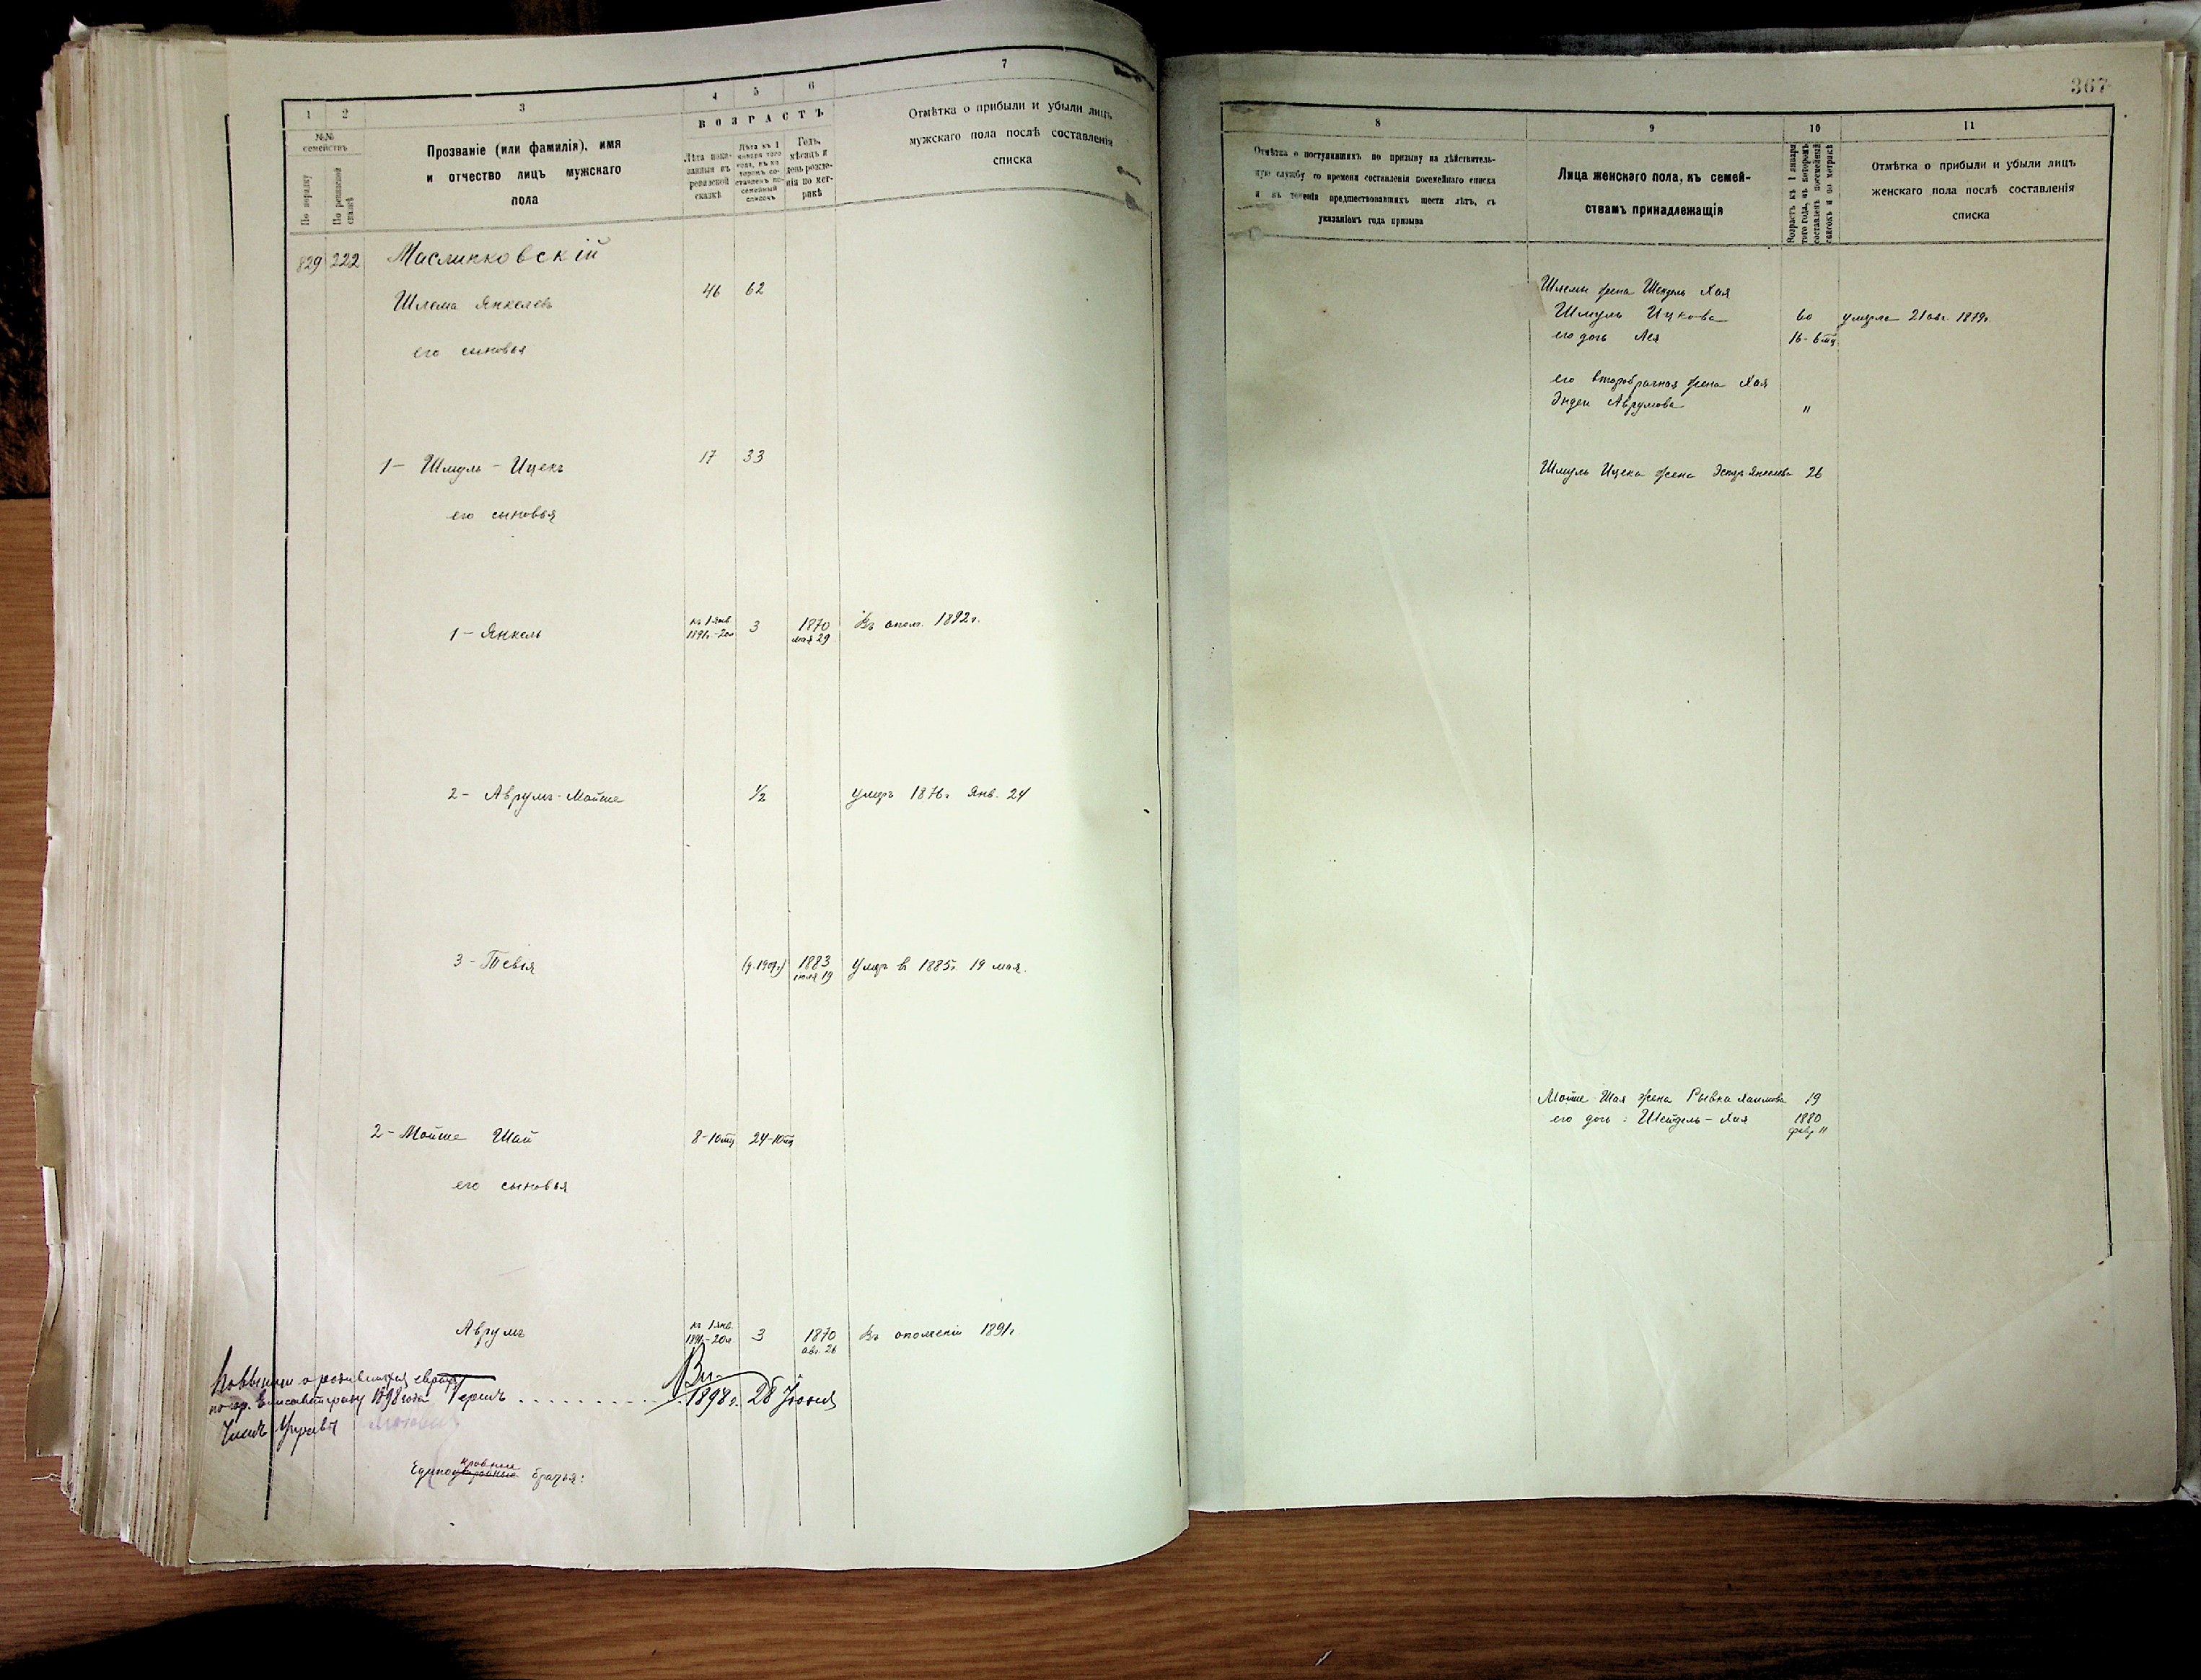 1 2 3 4 5 6 7
ВОЗРАСТЪ
№№ семействъ
По порядку
По ревизской сказкѣ
Прозваніе (или фамилія), имя
и отчество лицъ мужскаго
пола
Лѣта пока-
занныя въ
ревизской
сказкѣ
Лѣта къ 1
января того
года, въ ко-
торомъ со-
ставленъ по-
семейный
списокъ
Годъ,
мѣсяцъ и
день рожде-
нія по мет-
рикѣ
Отмѣтка о прибыли и убыли лицъ
мужскаго пола послѣ составленія
списка
829 222 Маслинковскій
Шлема Янкелевъ 46 62
его сыновья
1- Шмуль-Ицекъ 17 33
его сыновья
1- Янкель къ 1 янв. 1891г.-20л 3 1870 мая 29 Въ опол. 1892г.
2- Аврумъ-Мойше 1/2 умеръ 1876г Янв. 24
3- Тевья 1883 іюля 19 Умеръ въ 1885г. 19 мая.
2- Мойше Шай 8-10мц 24-10мц
его сыновья
Аврумъ къ 1 янв. 1891г.-20л 3 1870 авг. 26 Въ ополченіи 1891г
по гр. Елисаветграду 1898 года Гершъ . . . . . . . . . 1898г. 28 Іюня
Членъ Управы
братья:
367
8 9 10 11
Отмѣтка о поступившихъ по призыву на дѣйствитель-
ную службу со времени составленія посемейнаго списка
и въ теченіи предшествовавшихъ шести лѣтъ, съ
указаніемъ года призыва
Лица женскаго пола, къ семей-
ствамъ принадлежащія
Возрастъ къ 1 января
того года, въ которомъ
составленъ посемейный
списокъ и по метрикѣ
Отмѣтка о прибыли и убыли лицъ
женскаго пола послѣ составленія
списка
Шлемы жена Шендль Хая
Шмуль Ицкова 60 умерла 21 авг. 1879г.
его дочь Лея 16-6мц
его второбрачная жена Хая
Энден Аврумова "
Шмуль Ицека жена Эстеръ Янкелева 26
Мойше Шая жена Рывка Хаимова 19
его дочь: Шейндель-Хая 1880 февр. 11